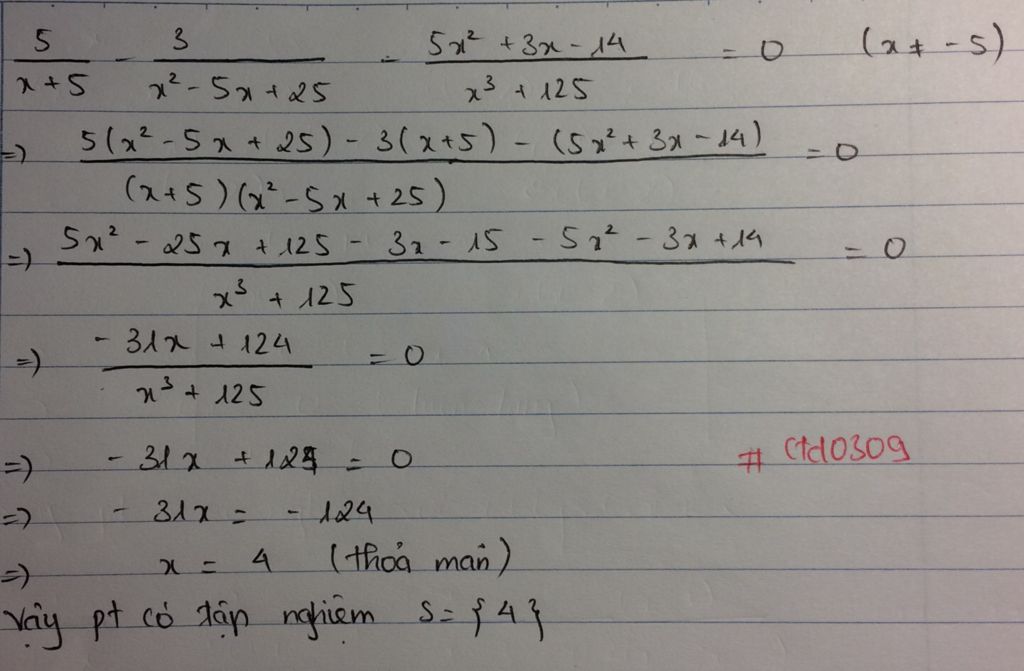 5/(x+5) - 3/(x² - 5x + 25) - (5x² + 3x - 14)/(x³ + 125) = 0 (x ≠ -5)
=) (5(x² - 5x + 25) - 3(x+5) - (5x² + 3x - 14))/((x+5)(x² - 5x + 25)) = 0
=) (5x² - 25x + 125 - 3x - 15 - 5x² - 3x + 14)/(x³ + 125) = 0
=) (-31x + 124)/(x³ + 125) = 0
=) -31x + 124 = 0 # Ctd0309
=) -31x = -124
=) x = 4 (thoả mãn)
Vậy pt có tập nghiệm S = {4}